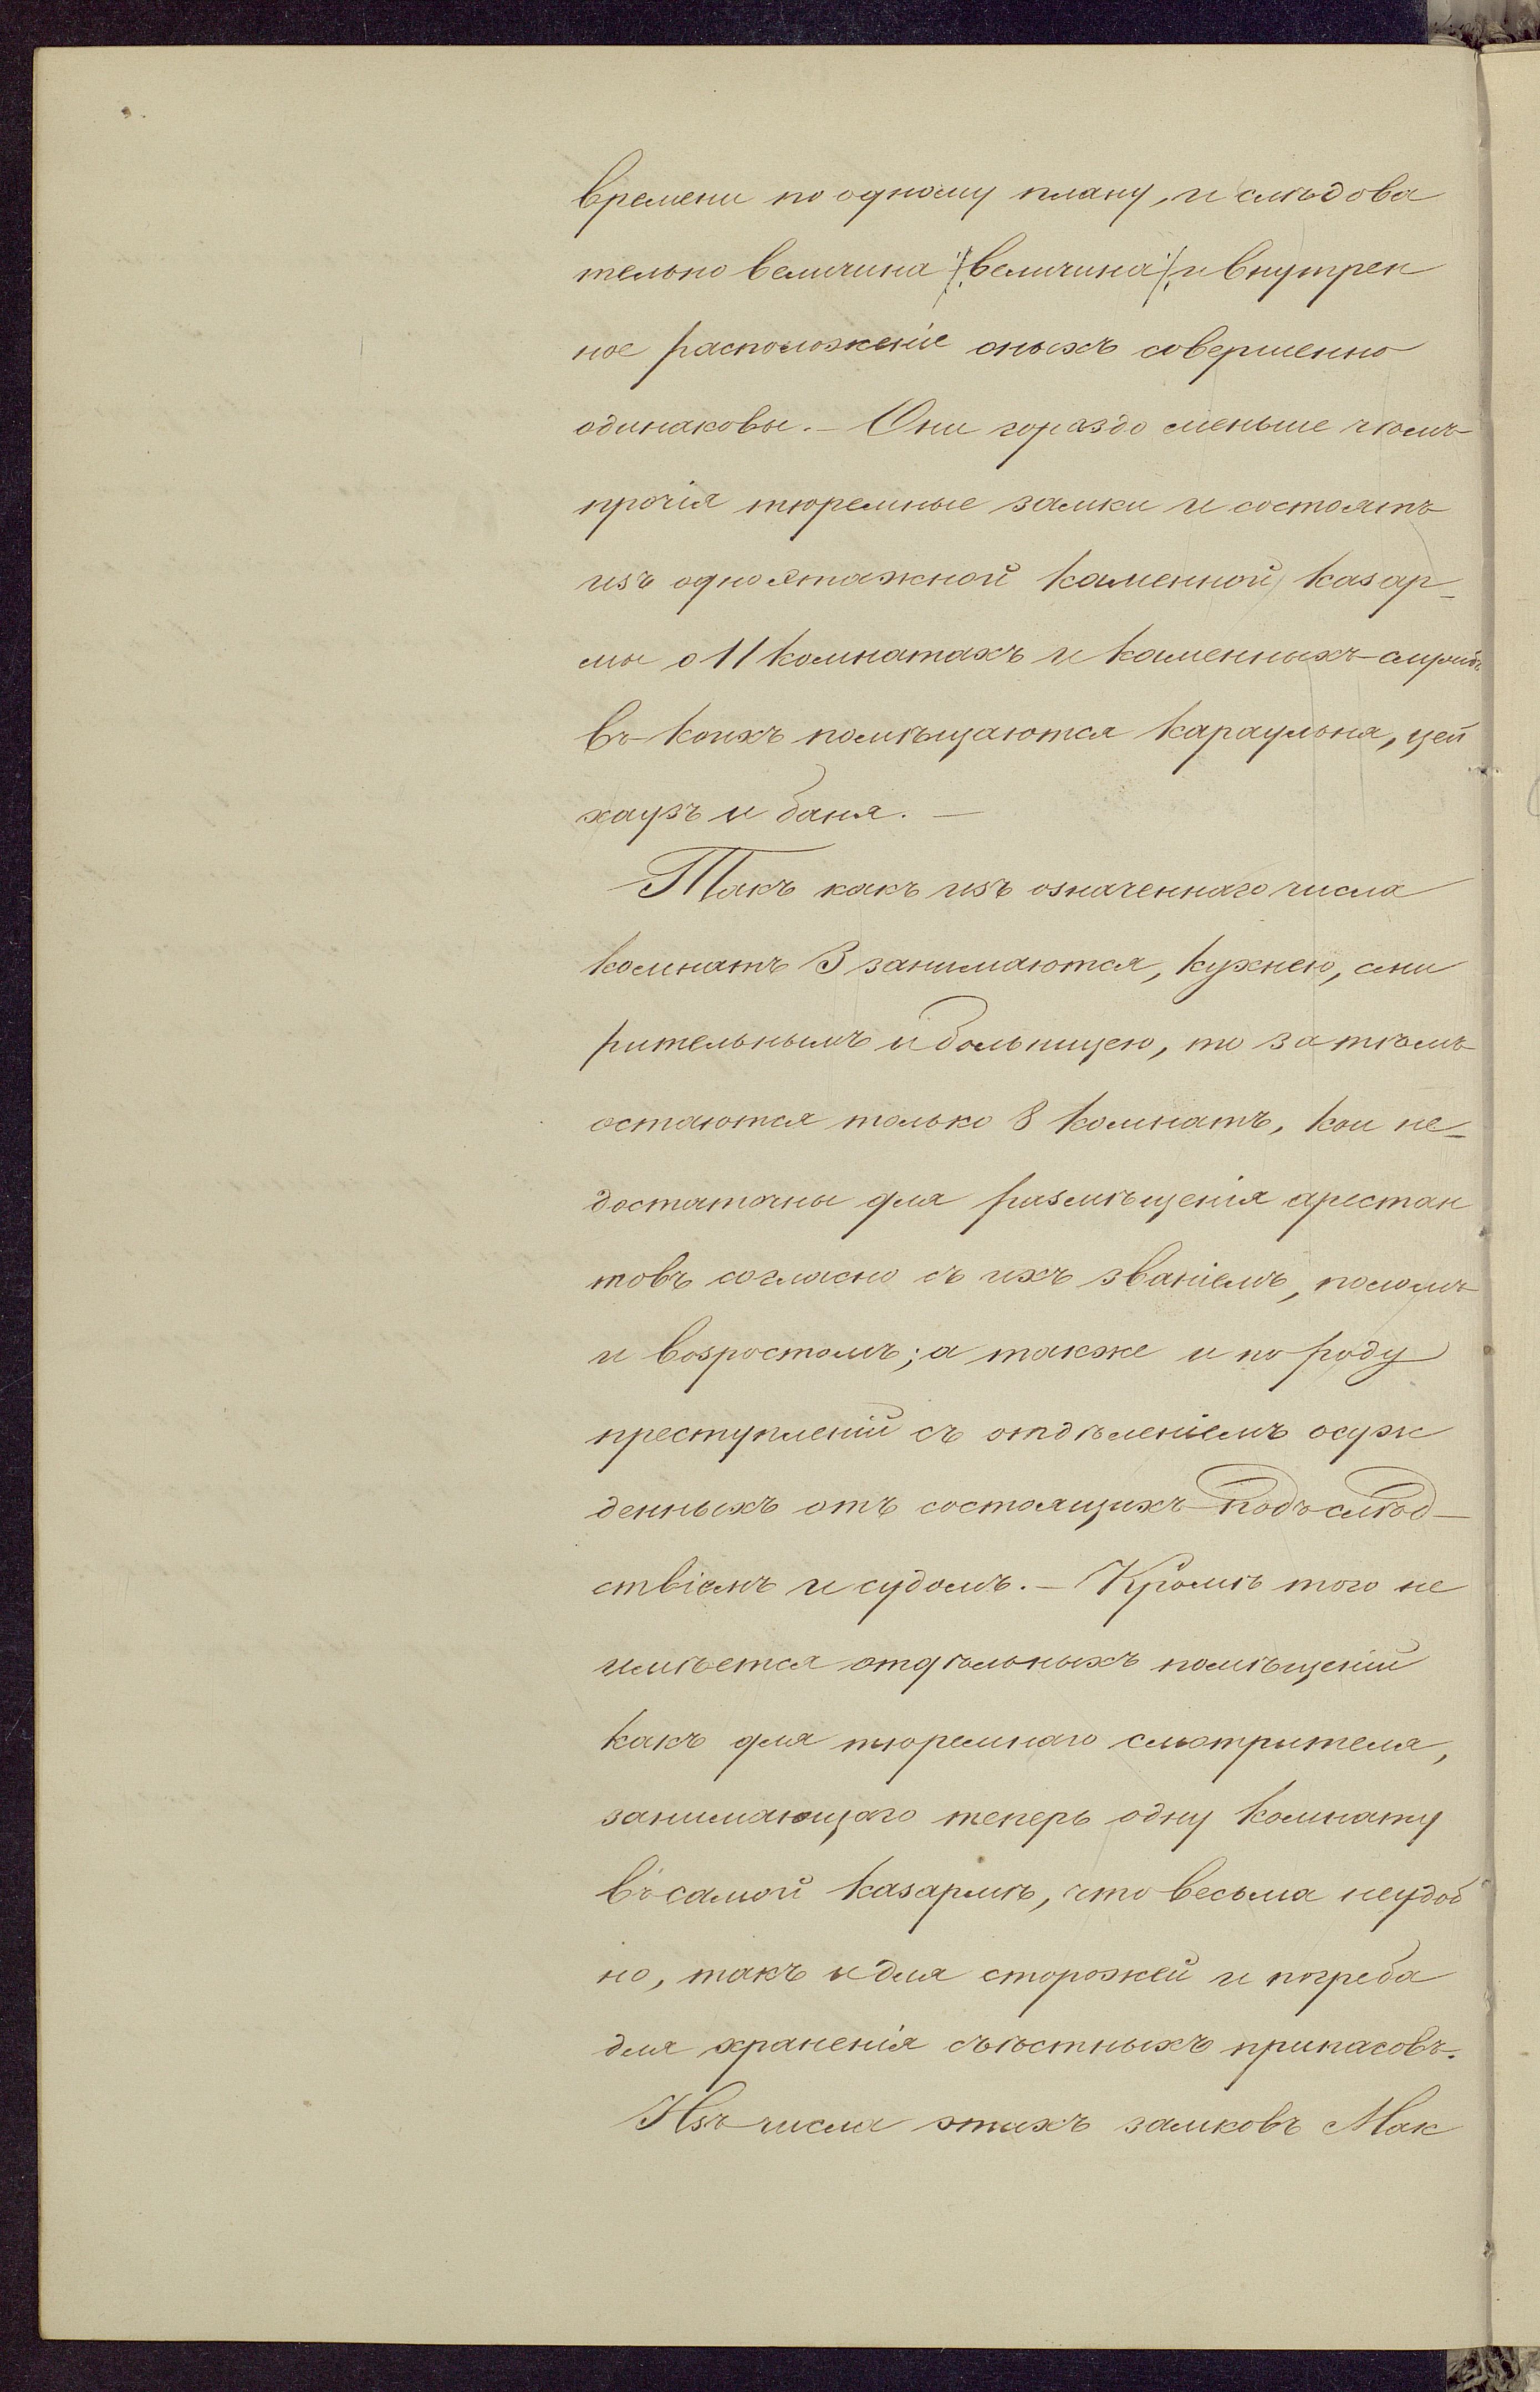 времени по одному плану, и слѣдова
тельно величина /:величина:/ и внутрен
ное расположеніе оныхъ совершенно
одинаковы. — Они гораздо меньше чѣмъ
прочія тюремные замки и состоятъ
изъ одноэтажной каменной казар-
мы о 11 комнатахъ и каменныхъ службъ
въ коихъ помѣщаются караульна, цей
хаузъ и баня. —
Такъ какъ изъ означеннаго числа
комнатъ 3 занимаются, кухнею, сми
рительнымъ и больницею, то за тѣмъ
остаются только 8 комнатъ, кои не-
достаточны для размѣщенія арестан
товъ согласно съ ихъ званіемъ, поломъ
и возростомъ; а также и по роду
преступленій съ отдѣленіемъ осуж
денныхъ отъ состоящихъ подъ слѣд-
ствіемъ и судомъ. — Кромѣ того не
имѣется отдѣльныхъ помѣщеній
какъ для тюремнаго смотрителя,
занимающаго теперь одну комнату
въ самой казармѣ, что весьма неудоб
но, такъ и для сторожей и погреба
для храненія съѣстныхъ припасовъ.
Изъ числа этихъ замковъ Мак